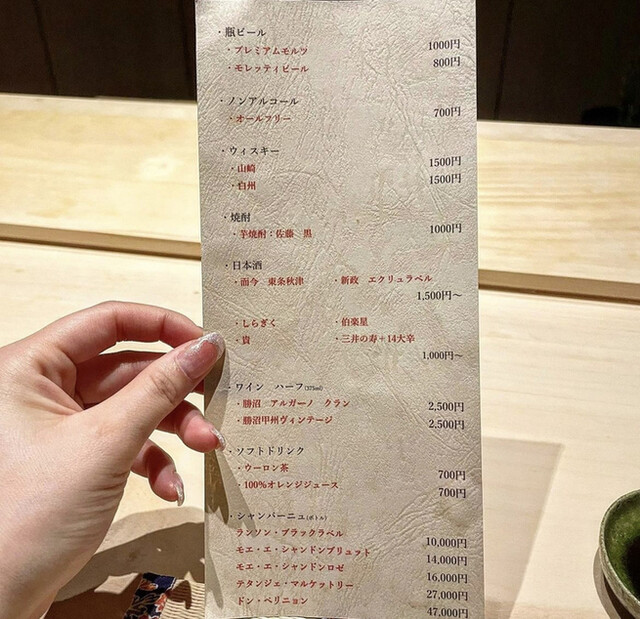 ・瓶ビール
・プレミアムモルツ 1000円
・モレッティビール 800円
・ノンアルコール
・オールフリー 700円
・ウィスキー
・山崎 1500円
・白州 1500円
・焼酎
・芋焼酎：佐藤 黒 1000円
・日本酒
・而今 東条秋津 ・新政 エクリュラベル
1,500円～
・しらぎく ・伯楽星
・貴 ・三井の寿＋14大辛
1,000円～
・ワイン ハーフ(375ml)
・勝沼 アルガーノ クラン 2,500円
・勝沼甲州ヴィンテージ 2,500円
・ソフトドリンク
・ウーロン茶 700円
・100%オレンジジュース 700円
・シャンパーニュ(ボトル)
ランソン・ブラックラベル 10,000円
モエ・エ・シャンドンブリュット 14,000円
モエ・エ・シャンドンロゼ 16,000円
テタンジェ・マルケットリー 27,000円
ドン・ペリニョン 47,000円